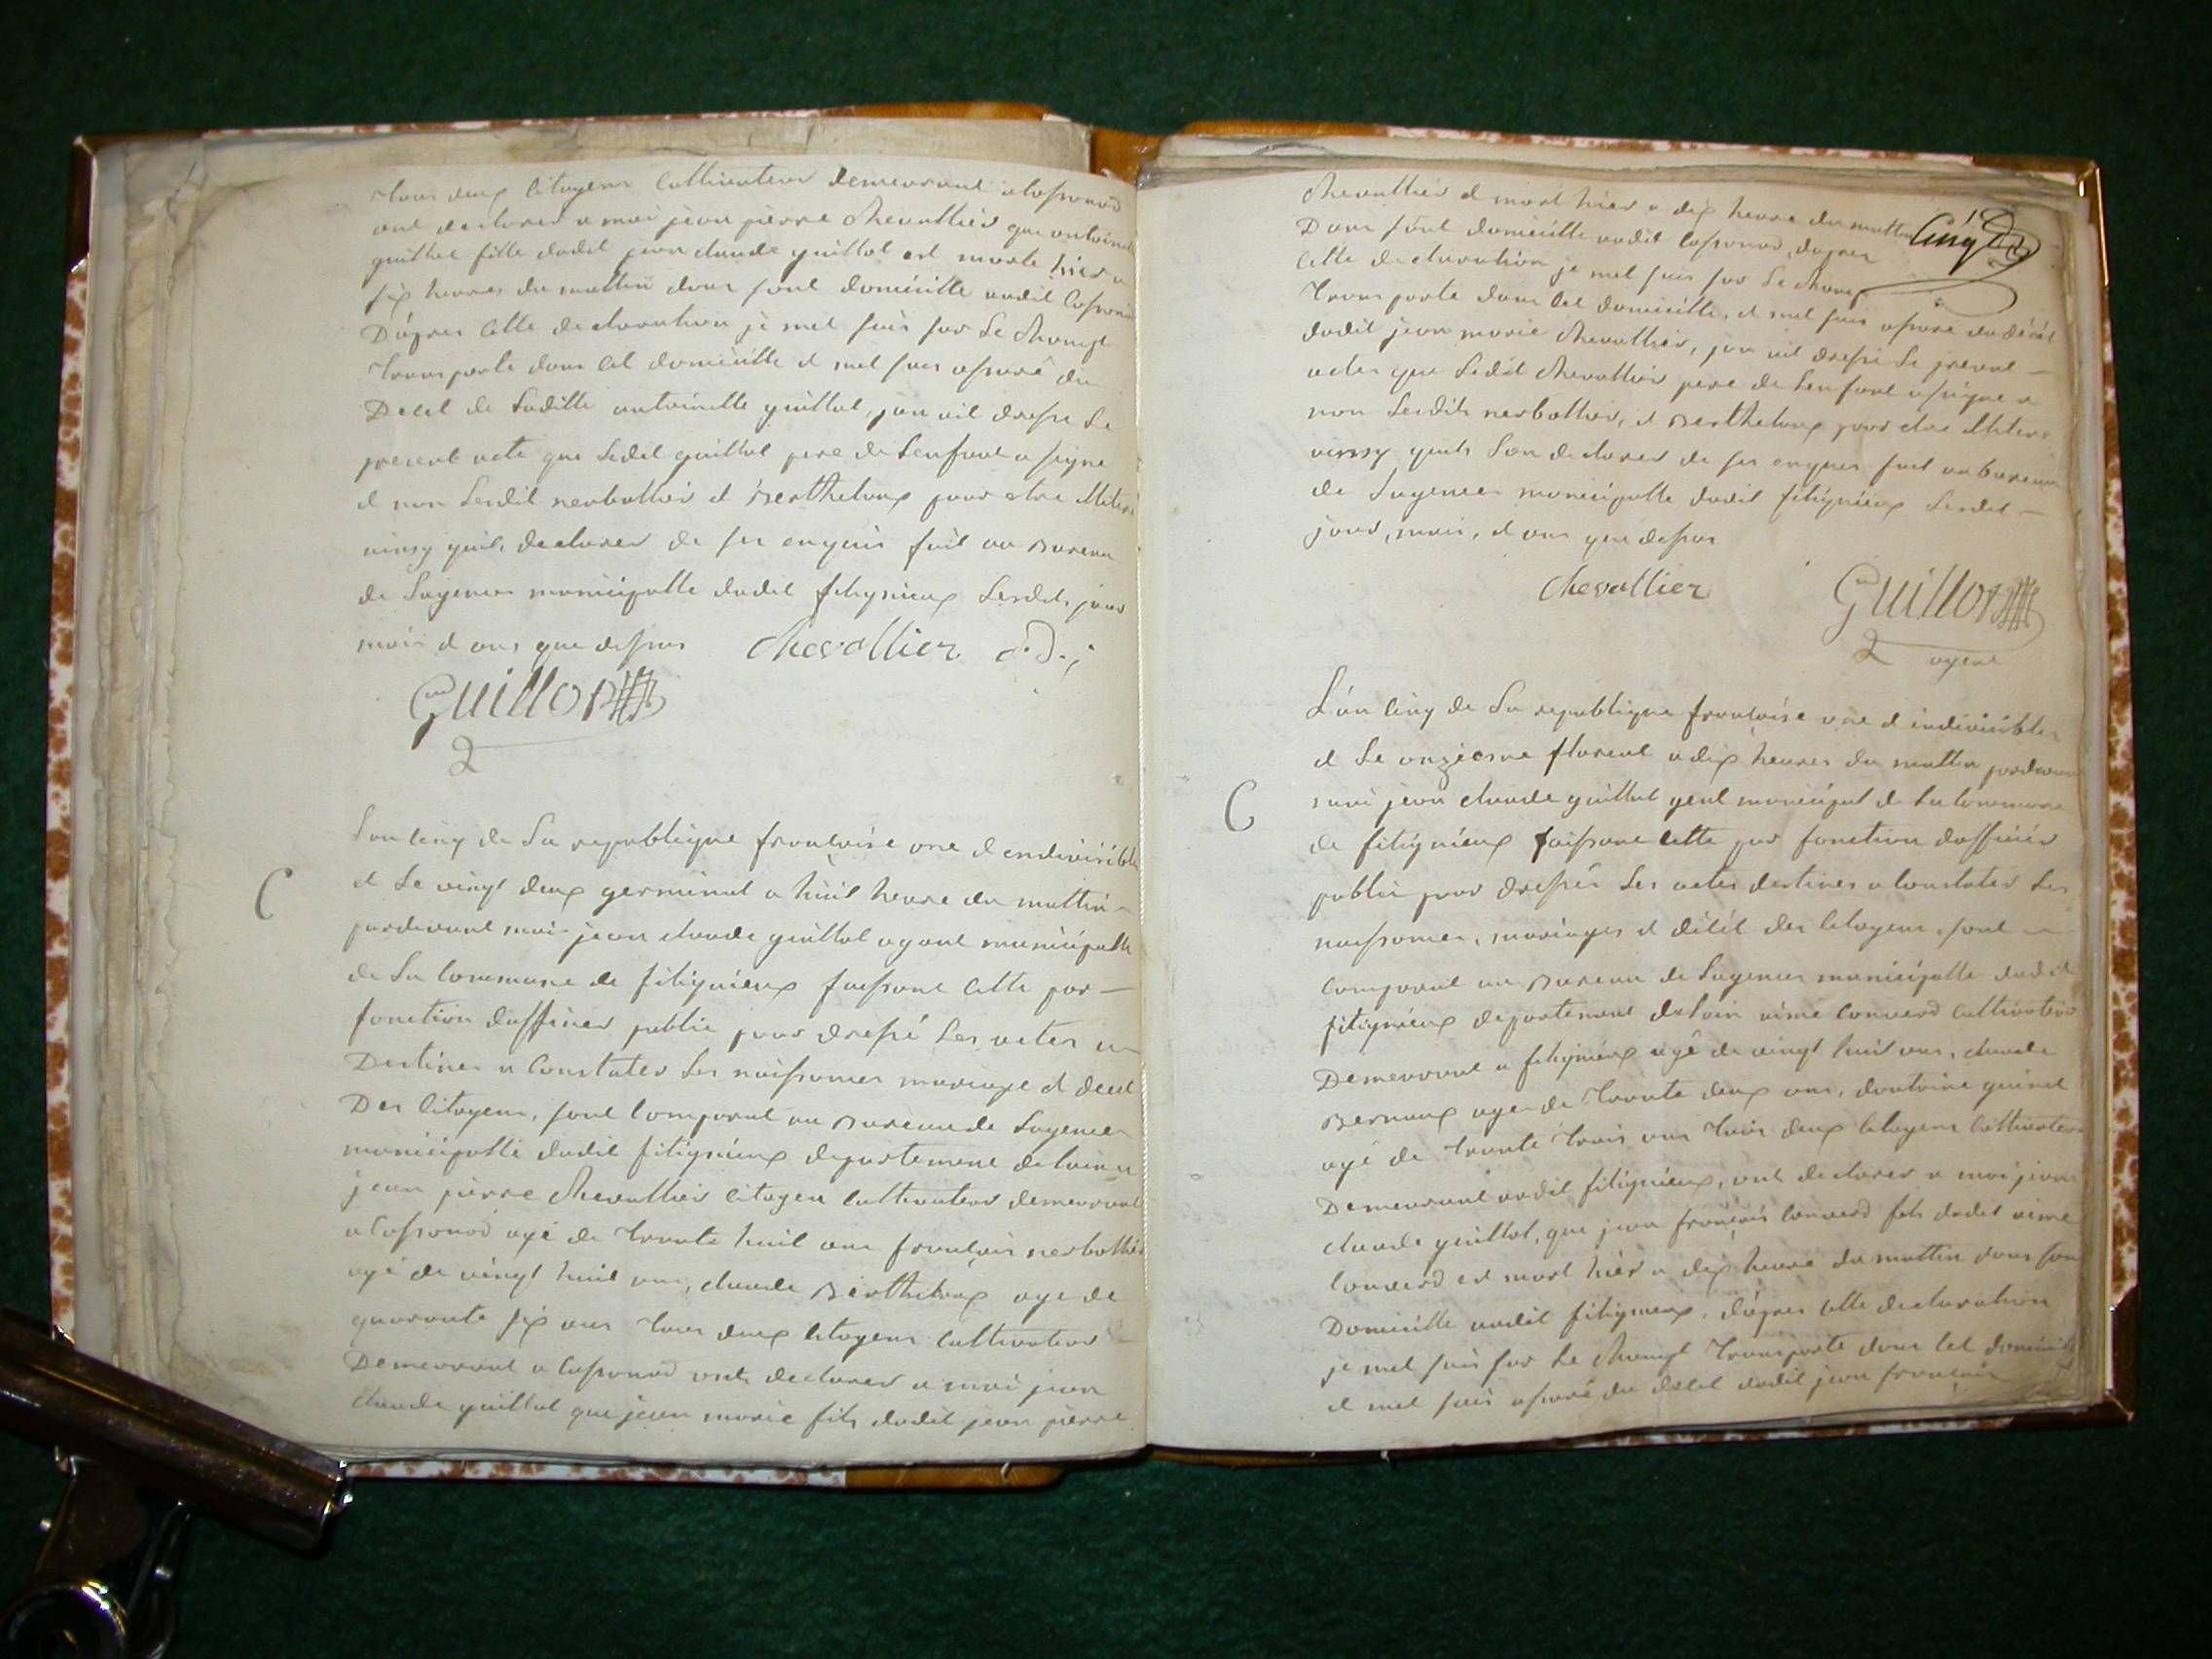 tous deux citoyens cultivateur demeurant a cossonod
ont declarer a moi jean pierre chevallier que antoinette
guillot fille dudit jean claude guillot est morte hier a
six heures du mattin dans sont domicille audit cossonod
D'apres cette declaration je met suis sur le champt
transporte dans cet domicille et met suis assuré du
Decet de laditte antoinette guillot, jan ait dressé le
present acte que ledit guillot pere de lenfant a signe
et non lesdit nerbollier et Bertheloux pour etre illiteré
ainsy quils declarer de ses enquis fait au Bureau
de lagence municipalle dudit fitignieux lesdits jour
mois et ans que dessus chevallier
Guillot
2
C
Lan cinq de la republique francoise une et endivisible
et le vingt deux germinal a huit heure du mattin
pardevant moi jean claude guillot agant municipalle
de la commune de fitignieux faissant cette par
fonction dofficier public pour dressé les actes
Destines a constater les naissances mariage et decet
Des citoyens, sont comparut au Bureau de lagence
municipalle dudit fitignieux departement de lain
jean pierre chevallier citoyen cultivateur demeurant
a cossonod agé de trante huit ans francois nerbollier
agé de vingt huit ans, claude Bertheloux age de
quarante six ans tous deux citoyens cultivateur
Demeurant a cossonod onts declarer a moi jean
claude guillot que jean marie fils dudit jean pierre
chevallier et mort hier a dix heure du mattin
Dans sont domicille audit cossonod, dapres
cette declaration je met suis sur le champ
transporte dans cet domicille, et met suis assuré du décét
dudit jean marie chevallier, jan ait dressé le presant
actes que ledit chevallier pere de lenfant a signe et
non lesdits nerbollier, et Bertheloux pour etre illitere
ainsy quils lon declarer de ses enquis fait au bureau
de lagence municipalle dudit fitignieux lesdit
jour, mois, et ans que dessus
cinq
chevallier Guillot
2 agent
C
L'an cinq de la republique francoise une et indivisible
et le onziesme floreal a dix heures du mattin pardevant
moi jean claude guillot gent municipal de la commune
de fitignieux faissant cette par fonction dofficier
public pour dressér les actes destines a constater les
naissances, mariages et décét des citoyens, sont
comparut au Bureau de lagence municipalle dudit
fitignieux departement de lain aimé convers cultivateur
Demeurant a fitignieux agé de vingt huit ans, claude
Bernaux age de trante deux ans, dantoine guinet
agé de trante trois ans tous deux citoyens cultivateur
Demeurant audit fitignieux, onts declarer a moi jean
claude guillot, que jean françois convers fils dudit aimé
convers et mort hier a dix heure du mattin dans son
Domicille audit fitignieux. D'apres cette declaration
je met suis sur le champt transporte dans cet domicille
et met suis assuré du décét dudit jean francois